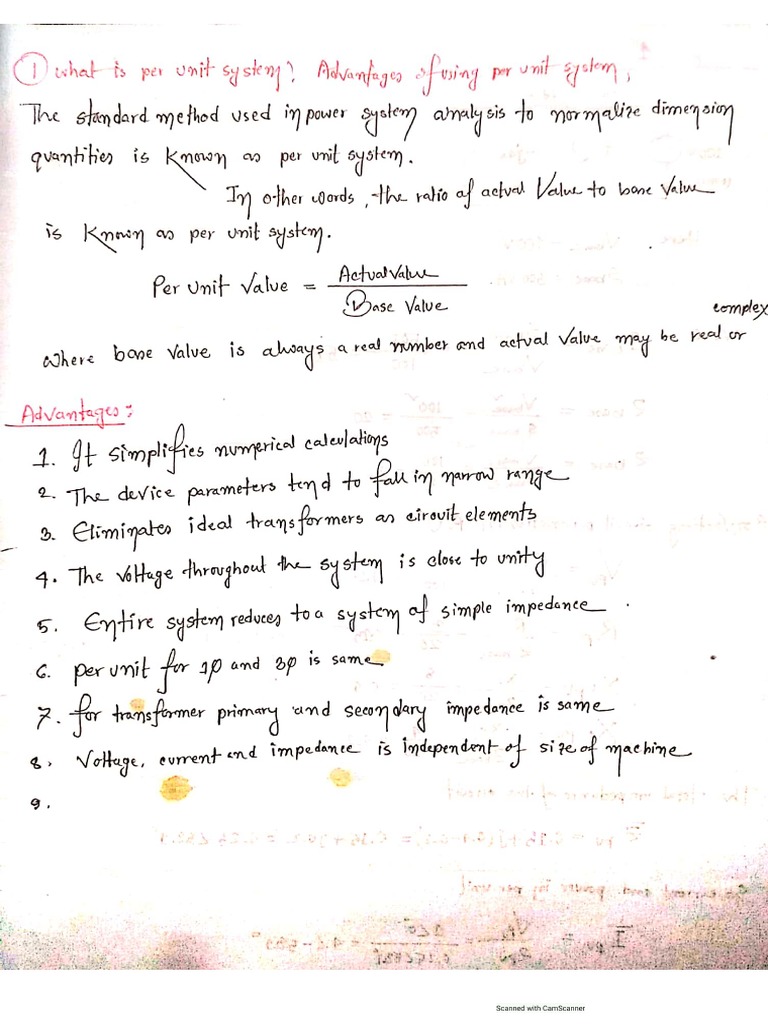 ① What is per unit system? Advantages of using per unit system,
The standard method used in power system analysis to normalize dimension
quantities is known as per unit system.
In other words, the ratio of actual value to base value
is known as per unit system.
Per unit value = Actual value / Base value
complex
where base value is always a real number and actual value may be real or
Advantages:
1. It simplifies numerical calculations
2. The device parameters tend to fall in narrow range
3. Eliminates ideal transformers as circuit elements
4. The voltage throughout the system is close to unity
5. Entire system reduces to a system of simple impedance
6. per unit for 1φ and 3φ is same
7. for transformer primary and secondary impedance is same
8. Voltage, current and impedance is independent of size of machine
9.
Scanned with CamScanner